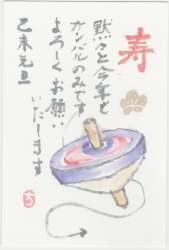 寿
黙々と今年も
ガンバルのみです
よろしくお願い
いたします
乙未元旦